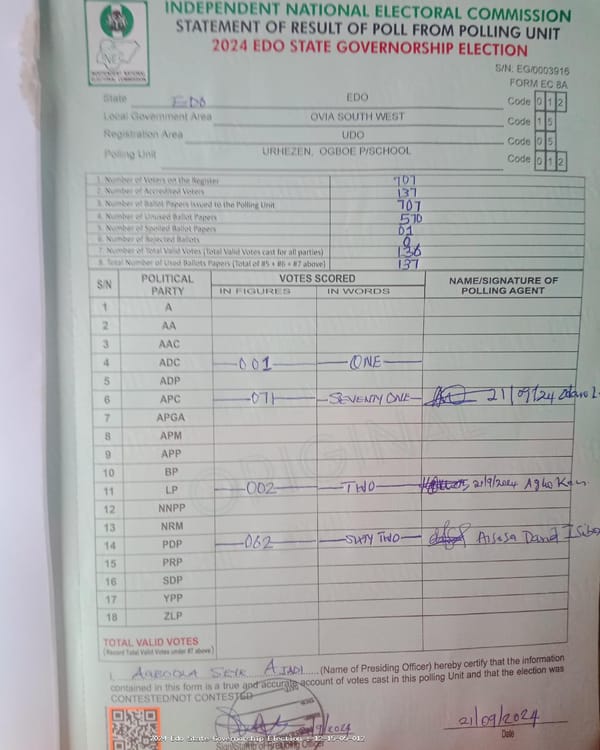 INDEPENDENT NATIONAL ELECTORAL COMMISSION
STATEMENT OF RESULT OF POLL FROM POLLING UNIT
2024 EDO STATE GOVERNORSHIP ELECTION
S/N: EG/0003916
FORM EC 8A
State EDO EDO Code 0 1 2
Local Government Area OVIA SOUTH WEST Code 1 5
Registration Area UDO Code 0 5
Polling Unit URHEZEN, OGBOE P/SCHOOL Code 0 1 2
1. Number of Voters on the Register 707
2. Number of Accredited Voters 137
3. Number of Ballot Papers issued to the Polling Unit 707
4. Number of Unused Ballot Papers 570
5. Number of Spoiled Ballot Papers 01
6. Number of Rejected Ballots 0
7. Number of Total Valid Votes (Total Valid Votes cast for all parties) 136
8. Total Number of Used Ballots Papers (Total of #5 + #6 + #7 above) 137
S/N POLITICAL PARTY VOTES SCORED NAME/SIGNATURE OF POLLING AGENT
IN FIGURES IN WORDS
1 A
2 AA
3 AAC
4 ADC 001 ONE
5 ADP
6 APC 071 SEVENTY ONE 21/09/24
7 APGA
8 APM
9 APP
10 BP
11 LP 002 TWO 21/9/2024
12 NNPP
13 NRM
14 PDP 062 SIXTY TWO
15 PRP
16 SDP
17 YPP
18 ZLP
ORIGINAL
TOTAL VALID VOTES
(Record Total Valid Votes under #7 above)
I, AJADI (Name of Presiding Officer) hereby certify that the information
contained in this form is a true and accurate account of votes cast in this polling Unit and that the election was
CONTESTED/NOT CONTESTED
21/09/2024
Date
2024 Edo State Governorship Election : 12-15-05-012